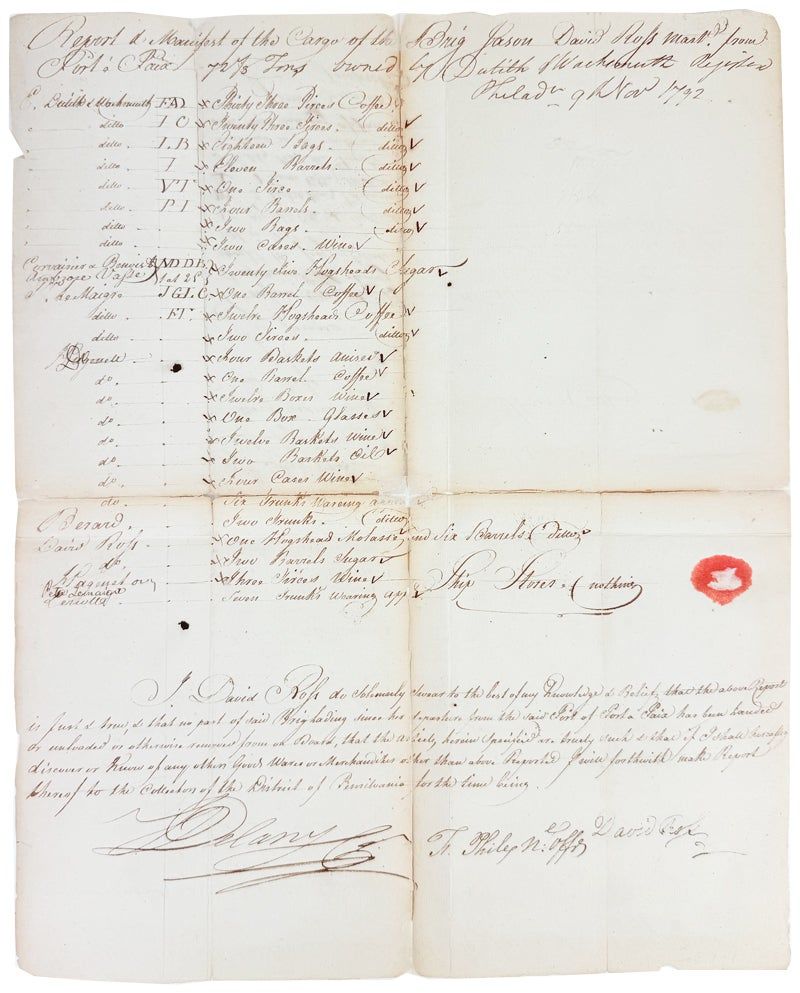 Report & Manifest of the Cargo of the Brig Jason David Ross mastr. from
Port a Paix 72 Tons owned by Dutilh & Wachsmuth
Philada. 9th Nov 1792
E. Dutilh & Wachsmuth FAD x Thirty Three Tirces Coffee
" ditto I C x Twenty Three Tirces. (ditto)
" ditto I. B x Eighteen Bags. (ditto)
" ditto I x Eleven Barrels. (ditto)
" ditto VT x One Tirce (ditto)
" ditto P. I x Four Barrels. (ditto)
" ditto x Two Bags. (ditto)
" ditto x Two Cases Wine
NDDB x Twenty Five Hogsheads Sugar
1 at 25
de Maigre IGLC x One Barrel Coffee
ditto FT x Twelve Hogsheads Coffee
ditto x Two Tirces. (ditto)
x Four Baskets
do x One Barrel Coffee
do x Twelve Boxes Wine
do x One Box Glasses
do x Twelve Baskets Wine
do x Two Baskets Oil
do x Four Cases Wine
do Six Trunks Wareing
Berard Two Trunks. (ditto)
David Ross x One Hogshead Molasses and Six Barrels (ditto)
do. x Two Barrels Sugar
x Three Tirces Wine Ship Stores. (nothing)
Seven Trunks Wearing app
I David Ross do Solemnly Swear to the best of my Knowledge & Belief, that the above Report
is Just & trew, & that no part of said Brigs lading since her departure from the said Port of Port a Paix has been handed
or unloaded or otherwise removed from on Board, that the herein Specified are truely such & that if I shall hereafter
discover or Know of any others Goods Wares or Merchandizes other than above Reported I will forthwith make Report
thereof to the Collector of the District of Pensilvania for the time being.
Delany
David Ross